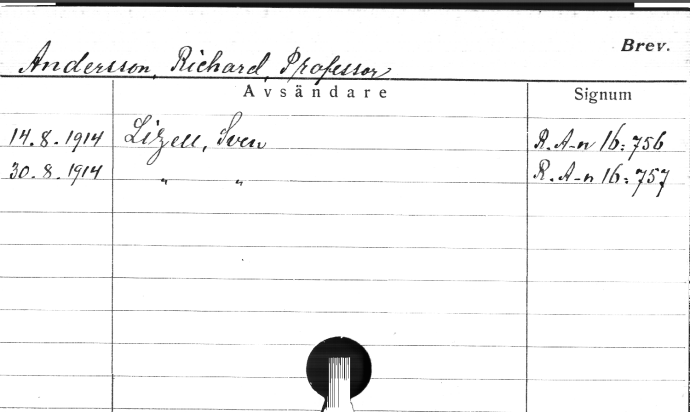 Brev.
Andersson, Richard, Professor
Avsändare Signum
14.8.1914 Lizell, Sven R.A-n 16:756
30.8.1914 " " R.A-n 16:757